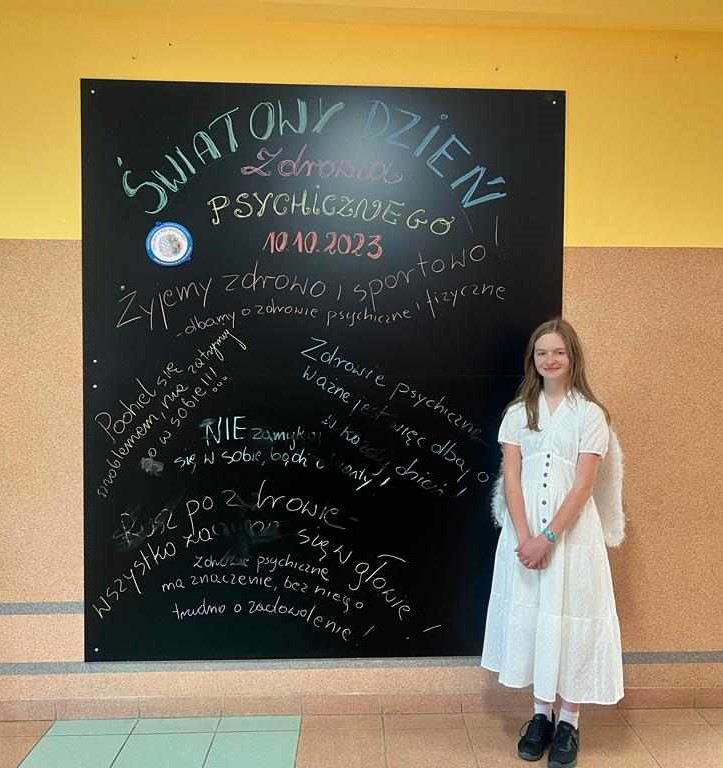 ŚWIATOWY DZIEŃ
Zdrowia
PSYCHICZNEGO
10.10.2023
Żyjemy zdrowo i sportowo!
-dbamy o zdrowie psychiczne i fizyczne
Podziel się
problemem, nie zatrzymuj
go w sobie!!!
Zdrowie psychiczne
ważne jest więc dbaj o
w każdy dzień!
NIE zamykaj
się w sobie, bądź!
Rusz po zdrowie-
wszystko zaczyna się w głowie!
zdrowie psychiczne
ma znaczenie, bez niego
trudno o zadowolenie!